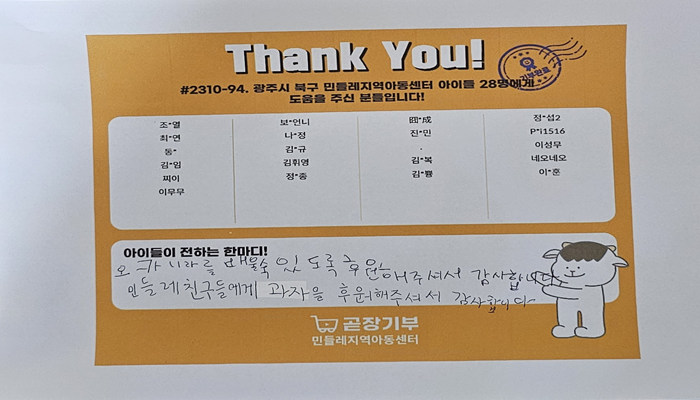 Thank You!
기부완료
#2310-94. 광주시 북구 민들레지역아동센터 아이들 28명에게
도움을 주신 분들입니다!
조*열
최*연
동*
김*임
찌이
이무무
보*언니
나*정
김*규
김휘영
정*종
囧*成
진*민
.
김*복
김*뿅
정*섭2
P*i1516
이성무
네오네오
이*훈
아이들이 전하는 한마디!
오카리나를 배울수 있도록 후원해주셔서 감사합니다
민들레친구들에게 과자을 후원해주셔서 감사합니다
곧장기부
민들레지역아동센터